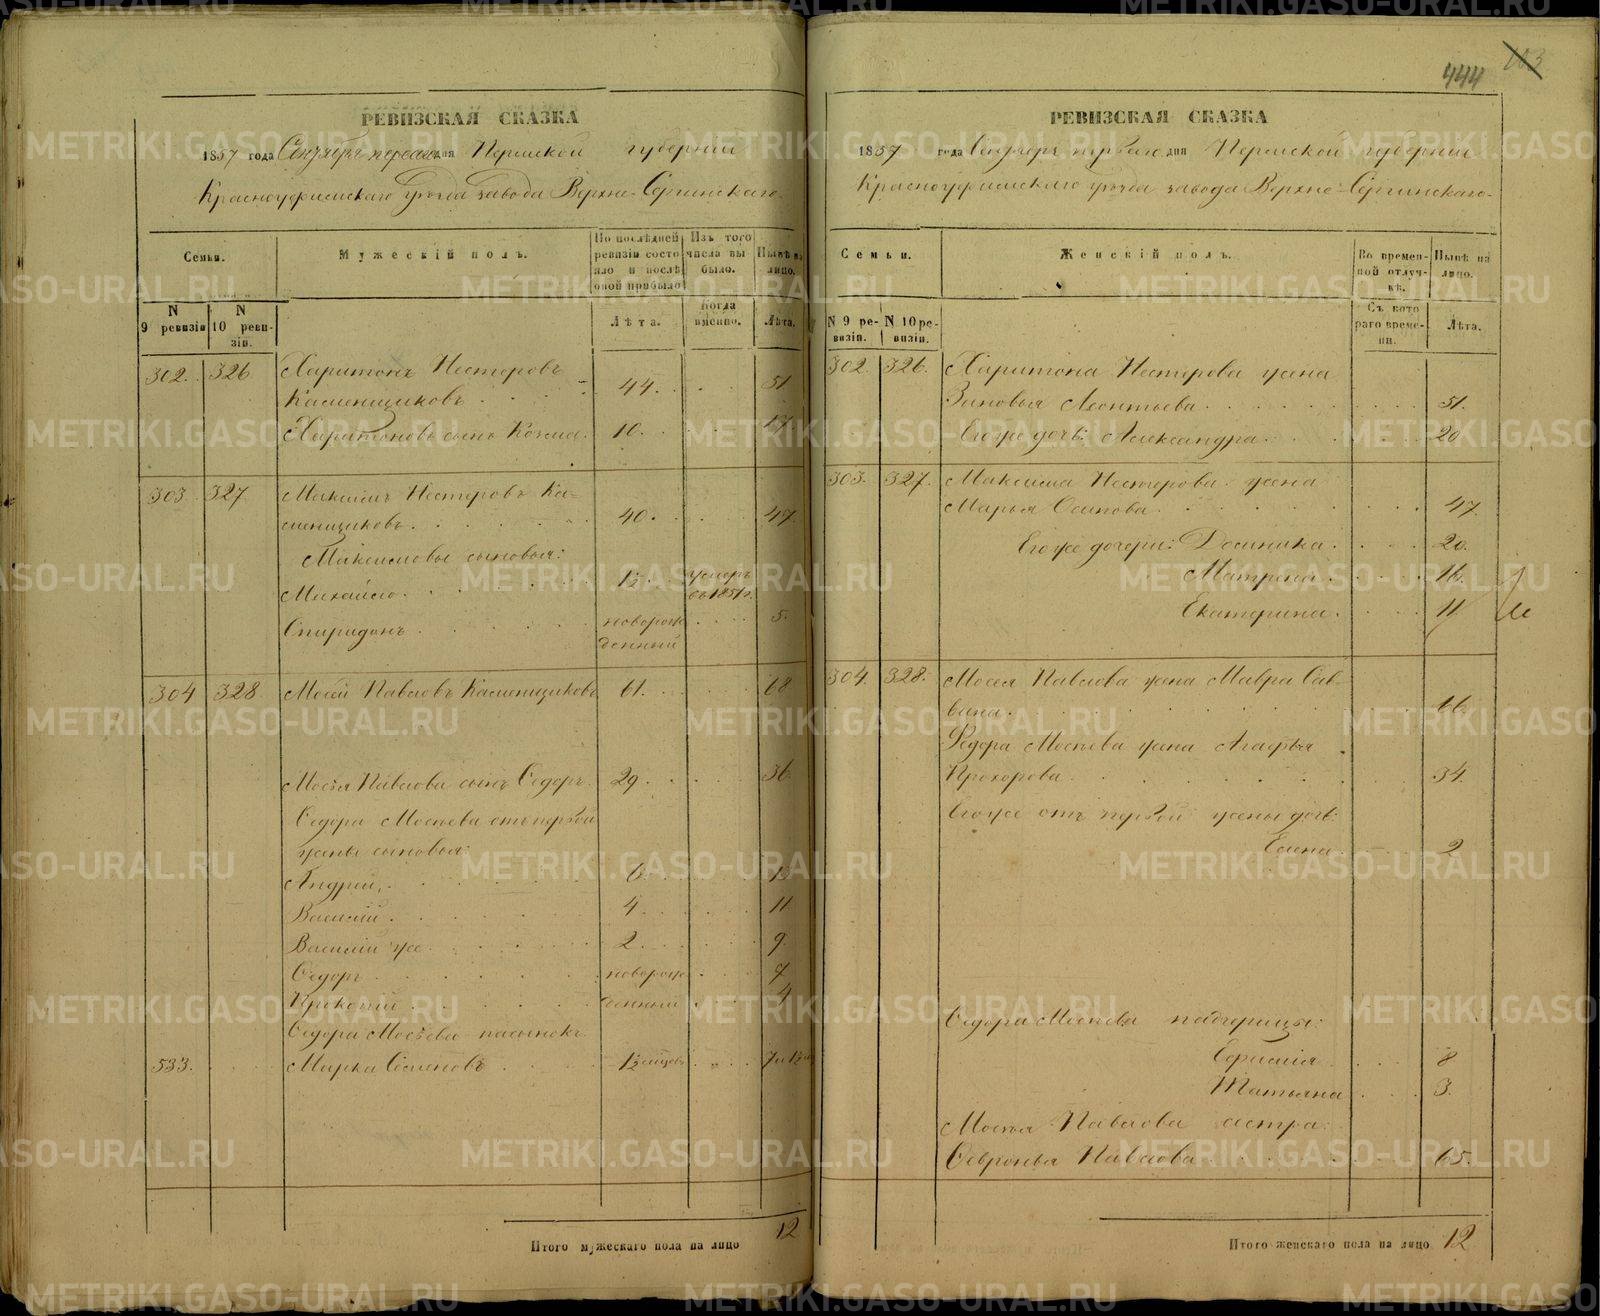 444
103
РЕВИЗСКАЯ СКАЗКА
1857 года Сентября перваго дня Пермской губерніи
Красноуфимскаго уѣзда завода Верхне-Сергинскаго
Семьи.
Мужескій полъ.
По послѣдней ревизіи состояло и послѣ оной прибыло
Изъ того числа выбыло.
Нынѣ на лицо.
N 9 ревизіи
N 10 ревизіи.
Лѣта.
Когда именно.
Лѣта.
302. 326 Харитонъ Нестеровъ
Каменщиковъ 44. 51
Харитоновъ сынъ Козма. 10. 17.
303 327 Максимъ Нестеровъ Ка-
менщиковъ. 40. 47.
Максимовы сыновья:
Михайло 1½ умеръ в 1851 г.
Спиридонъ новорожденный 5.
304 328 Мосей Павловъ Каменщиковъ 61. 68
Мосея Павлова сынъ Ѳедоръ 29. 36
Ѳедора Мосѣева отъ первой
жены сыновья:
Андрей, 6
Василій. 4 11
Василій же 2 9
Ѳедоръ новорож 7
Прокопій денный 4
Ѳедора Мосѣева пасынокъ
533. Марка Семеновъ 1½
Итого мужескаго пола на лицо 12
РЕВИЗСКАЯ СКАЗКА
1857 года Сентября перваго дня Пермской губерніи
Красноуфимскаго уѣзда завода Верхне-Сергинскаго
Семьи.
Женскій полъ.
Во временной отлучкѣ.
Нынѣ на лицо.
N 9 ревизіи.
N 10 ревизіи.
Съ котораго времени.
Лѣта.
302 326. Харитона Нестерова жена
Зиновья Леонтьева 51.
Его же дочь Александра. 20
303. 327. Максима Нестерова жена
Марья Осипова 47.
Его же дочери: Домника. 20.
Матрена 16.
Екатерина. 11
304. 328. Мосея Павлова жена Мавра Сав-
вина. 66.
Ѳедора Мосѣева жена Агафья
Прохорова 34.
Его же отъ первой жены дочь:
Елена 2
Ѳедора Мосѣева падчерицы:
Ефимія 8
Татьяна 3.
Мосея Павлова сестра:
Ѳевронья Павлова 65.
Итого женскаго пола на лицо 12
METRIKI.GASO-URAL.RU